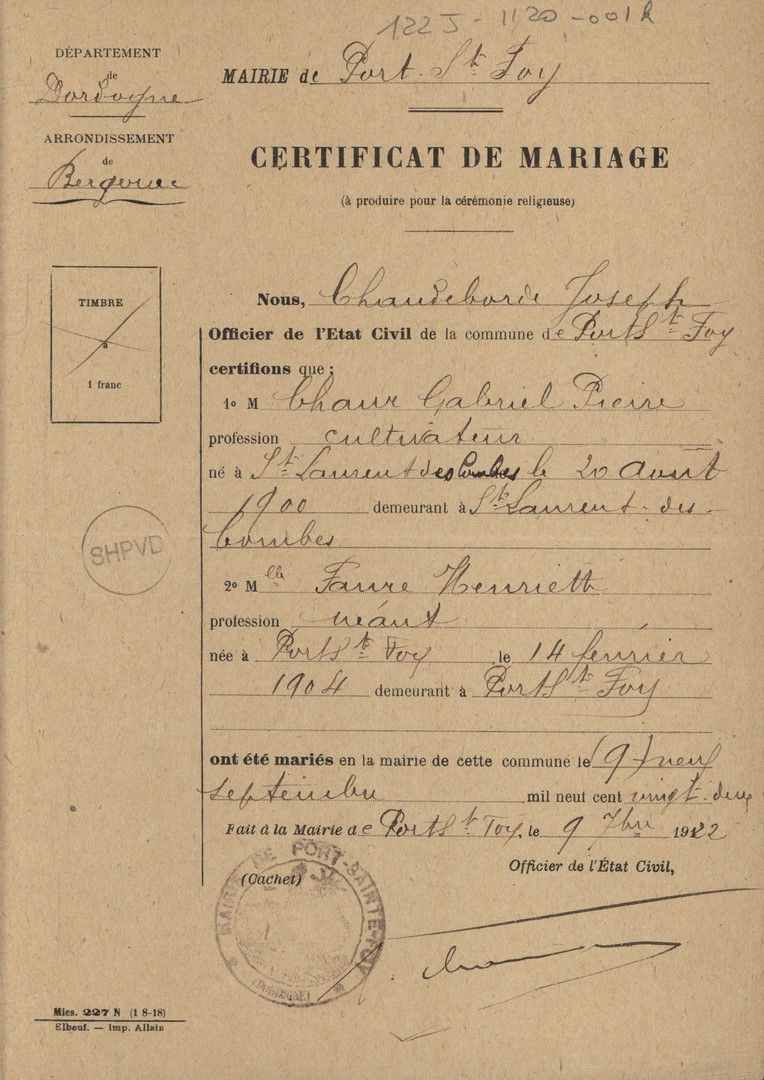 122 J - 1120 - 001 R
DÉPARTEMENT
de
Dordogne
ARRONDISSEMENT
de
Bergerac
MAIRIE de Port-Ste Foy
CERTIFICAT DE MARIAGE
(à produire pour la cérémonie religieuse)
TIMBRE
à
1 franc
Nous, Chaudeborde Joseph
Officier de l'Etat Civil de la commune de Port Ste Foy
certifions que :
1o M Chaux Gabriel Pierre
profession cultivateur
né à St Laurent des Combes le 20 Août
1900 demeurant à St Laurent-des-
Combes
2o Melle Faure Henriette
profession néant
née à Port Ste Foy le 14 février
1904 demeurant à Port Ste Foy
ont été mariés en la mairie de cette commune le (9) neuf
septembre mil neuf cent vingt-deux
Fait à la Mairie de Port Ste Foy, le 9 7bre 1922
(Cachet)
Officier de l'État Civil,
MAIRIE DE PORT-SAINTE-FOY
(DORDOGNE)
SHPVD
Mies. 227 N (1 8-18)
Elbeuf. — Imp. Allain